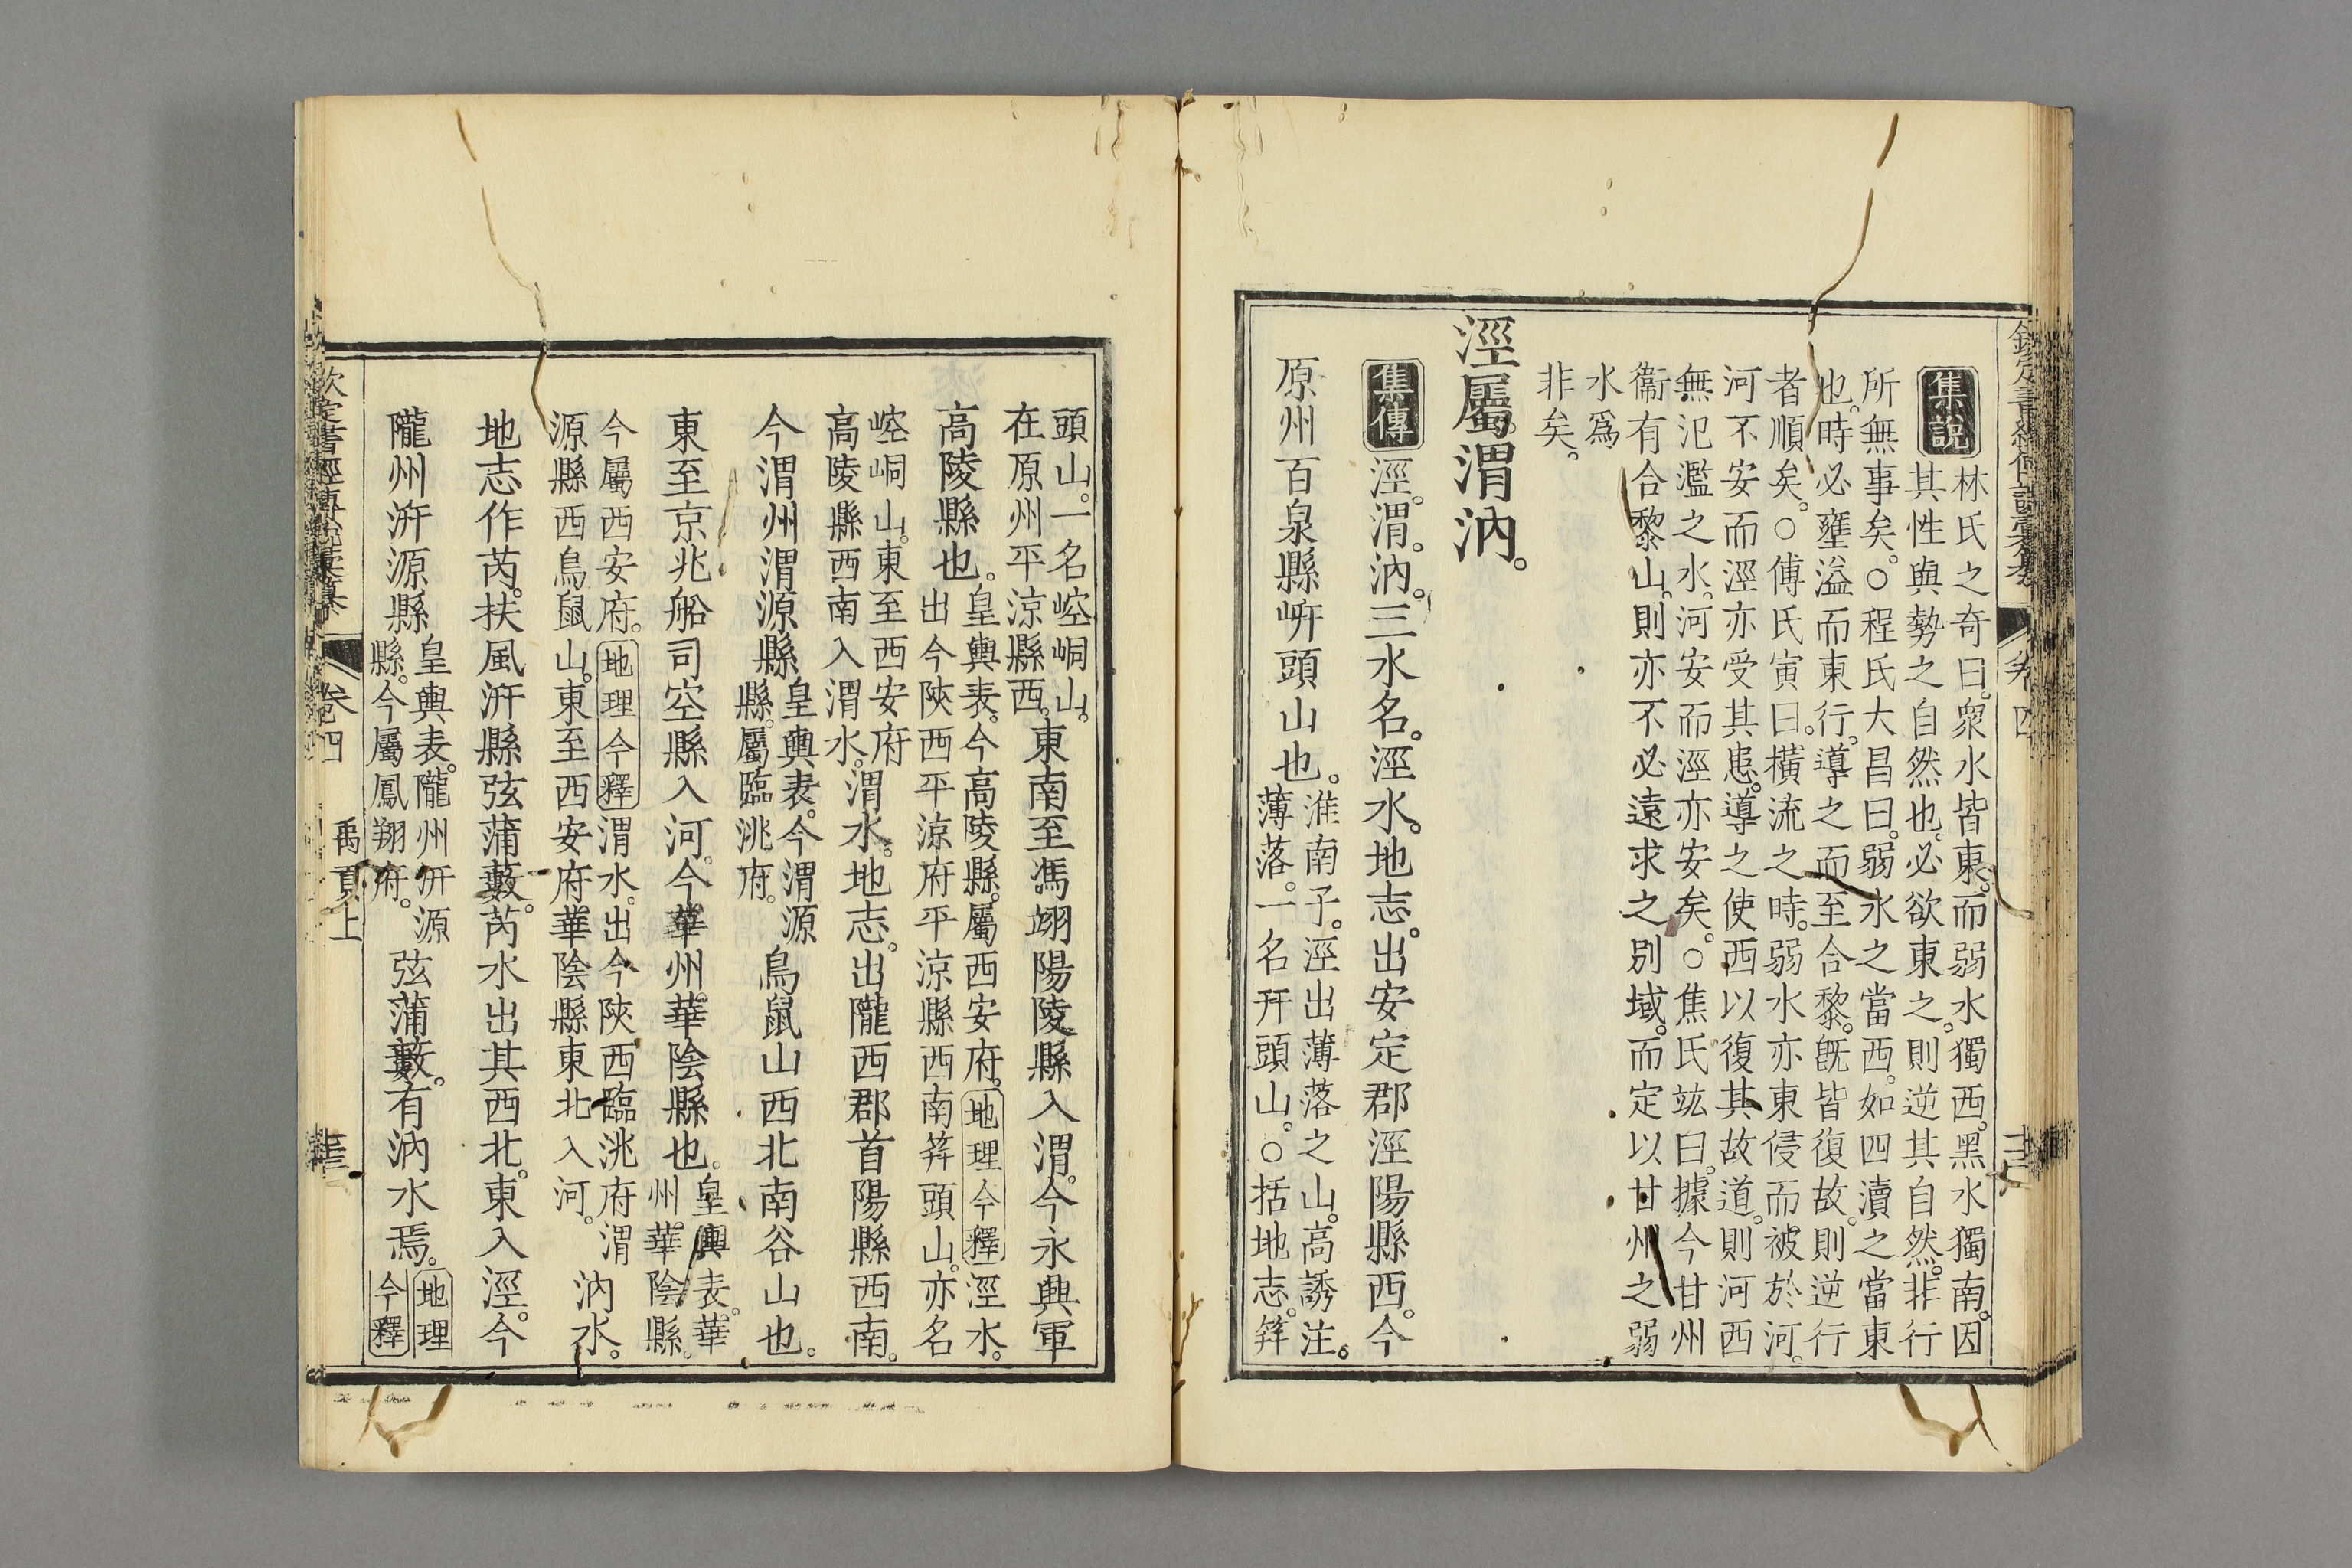 集說
林氏之奇曰。衆水皆東。而弱水獨西。黑水獨南。因
其性與勢之自然也。必欲東之。則逆其自然。非行
所無事矣。○程氏大昌曰。弱水之當西。如四瀆之當東
也。時必壅溢而東行。導之而至合黎。旣皆復故。則逆行
者順矣。○傅氏寅曰。橫流之時。弱水亦東侵而被於河。
河不安而涇亦受其患。導之使西以復其故道。則河西
無氾濫之水。河安而涇亦安矣。○焦氏竑曰。據今甘州
衞有合黎山。則亦不必遠求之別域。而定以甘州之弱
水爲
非矣。
涇屬渭汭。
集傳
涇。渭。汭。三水名。涇水。地志。出安定郡涇陽縣西。今
原州百泉縣岍頭山也。
淮南子。涇出薄落之山。高誘注。
薄落。一名幵頭山。○括地志。筓
頭山。一名崆峒山。
在原州平涼縣西。
東南至馮翊陽陵縣入渭。今永興軍
高陵縣也。
皇輿表。今高陵縣。屬西安府。地理今釋涇水。
出今陝西平涼府平涼縣西南筓頭山。亦名
崆峒山。東至西安府
高陵縣西南入渭水。
渭水。地志。出隴西郡首陽縣西南。
今渭州渭源縣
皇輿表。今渭源
縣。屬臨洮府。
鳥鼠山西北南谷山也。
東至京兆船司空縣入河。今華州華陰縣也。
皇輿表。華
州。華陰縣。
今屬西安府。地理今釋渭水。出今陝西臨洮府渭
源縣西鳥鼠山。東至西安府華陰縣東北入河。
汭水。
地志作芮。扶風汧縣弦蒲藪。芮水出其西北。東入涇。今
隴州汧源縣
皇輿表。隴州汧源
縣。今屬鳳翔府。
弦蒲藪。有汭水焉。
地理
今釋
欽定書經傳說彙纂
卷四
禹貢上